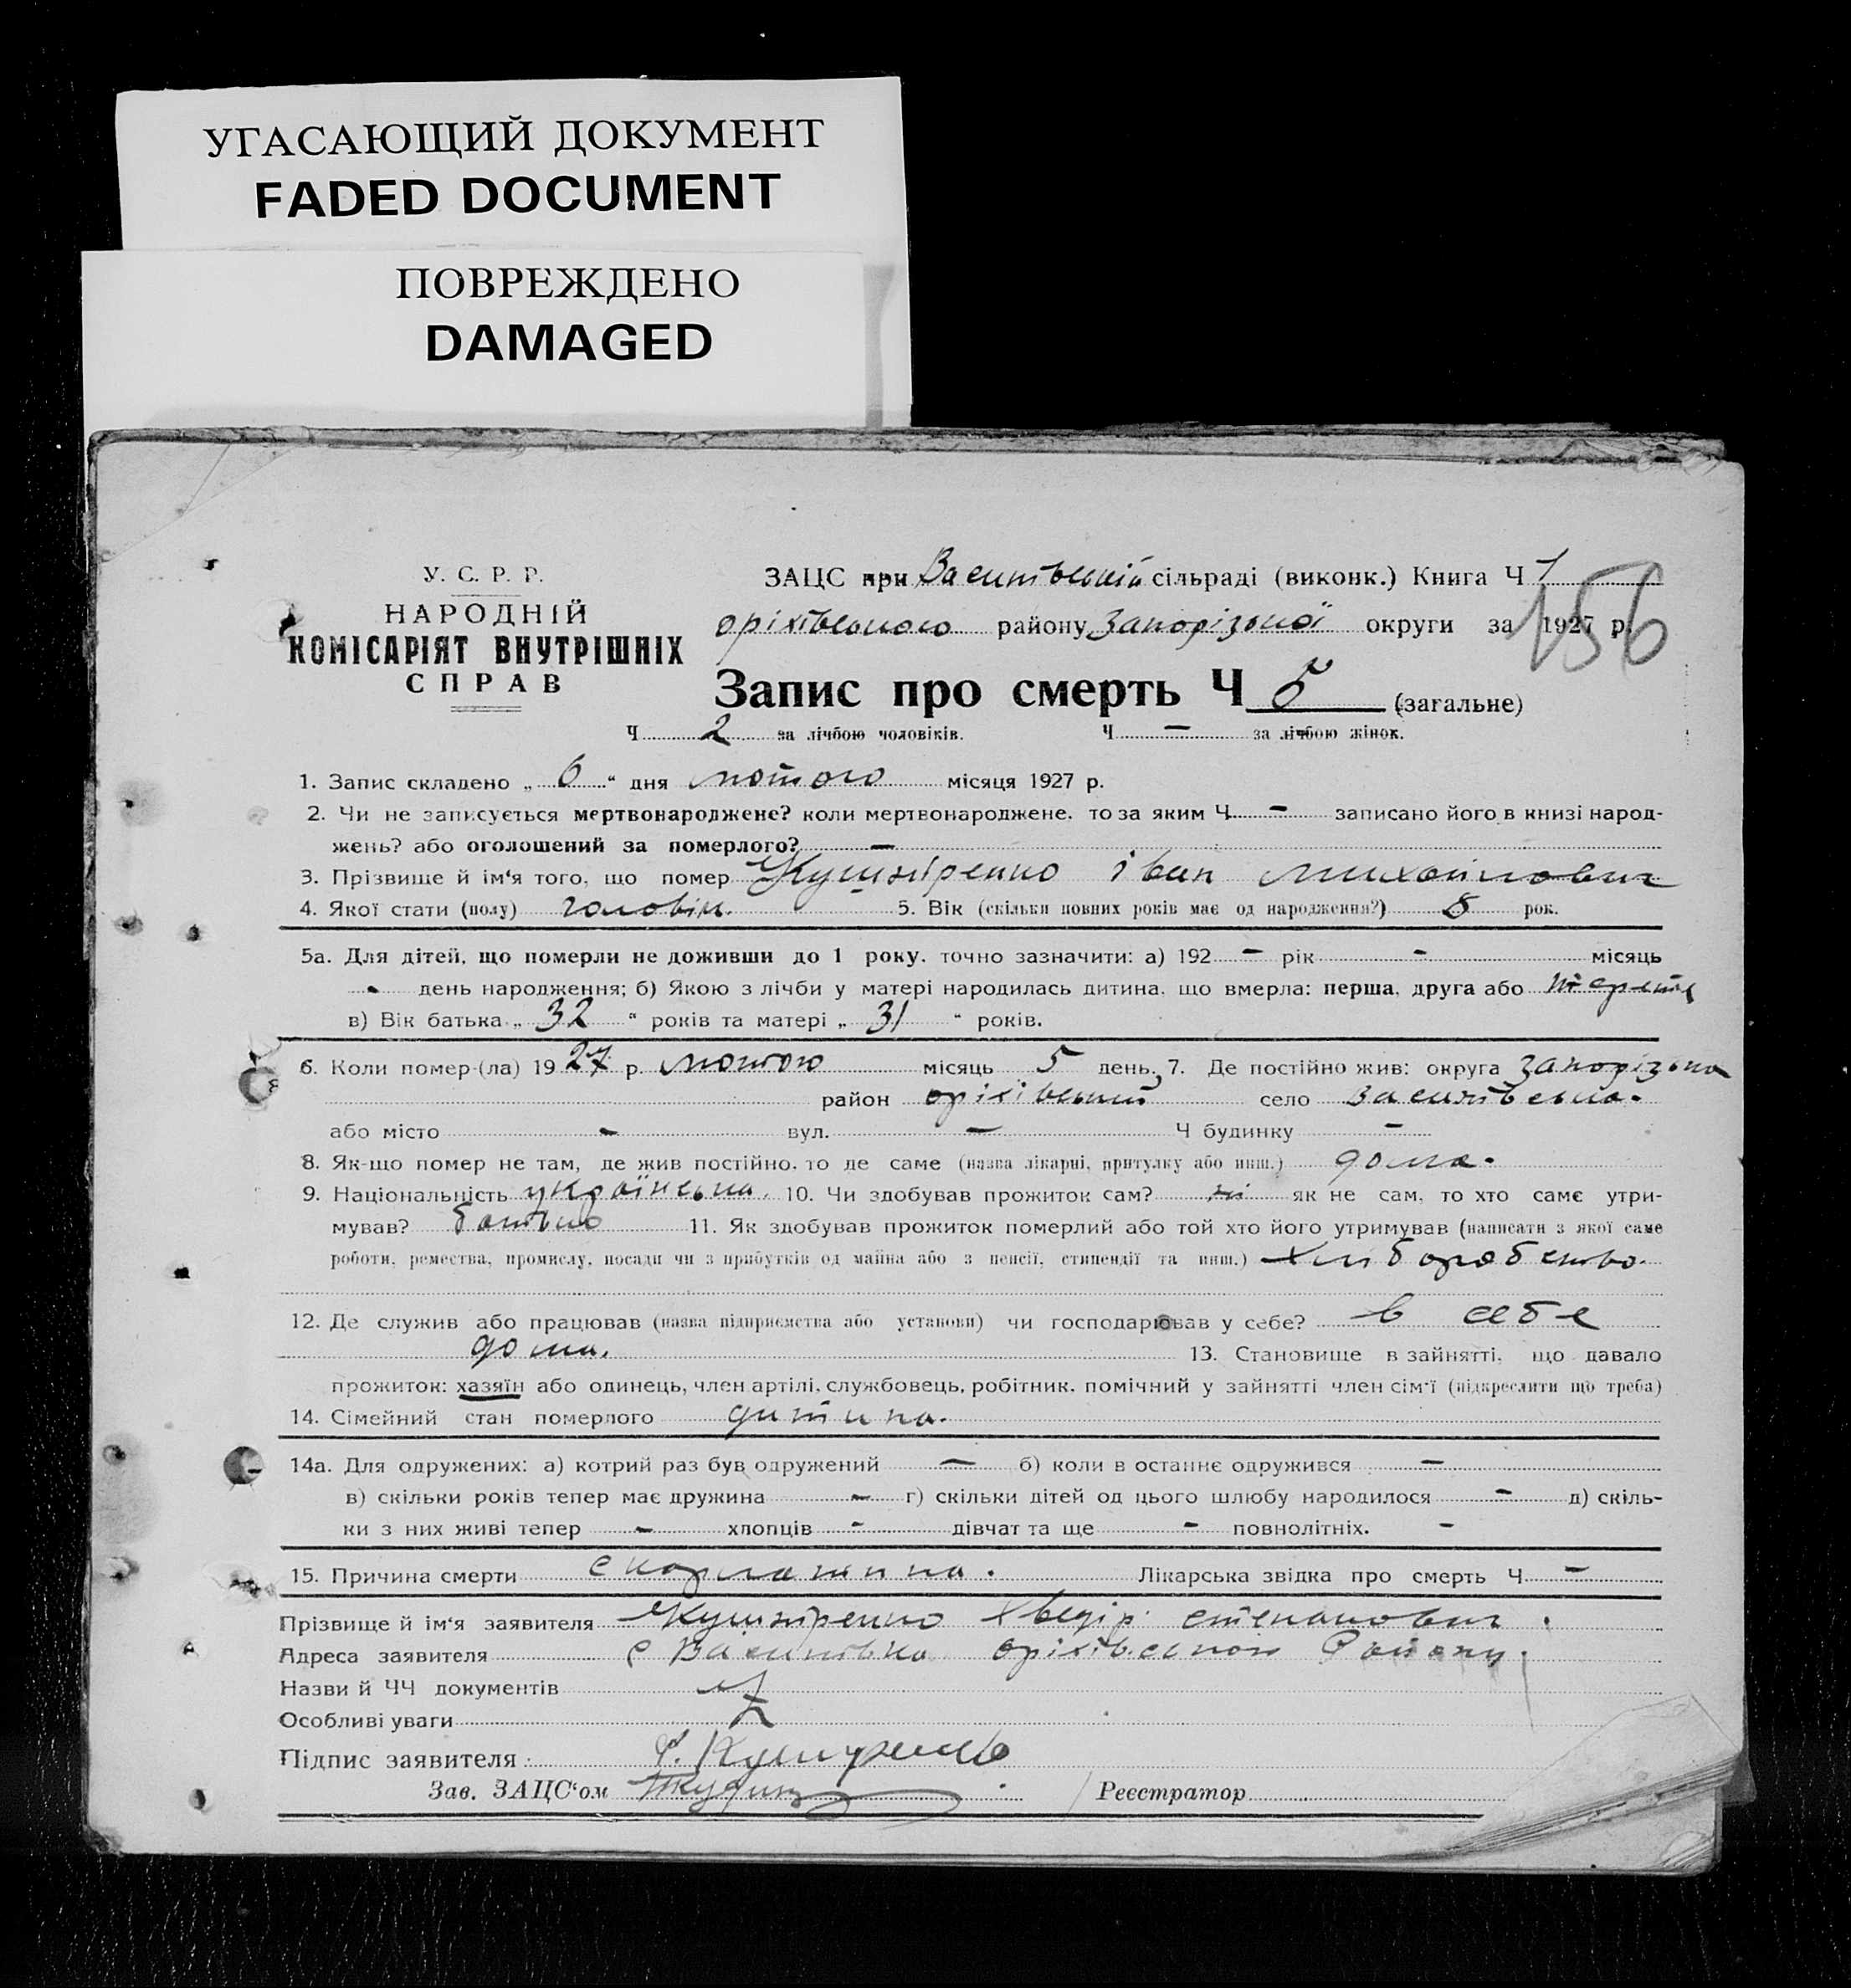 УГАСАЮЩИЙ ДОКУМЕНТ
FADED DOCUMENT
ПОВРЕЖДЕНО
DAMAGED
У. С. Р. Р.
НАРОДНІЙ
КОМІСАРІЯТ ВНУТРІШНІХ
СПРАВ
ЗАЦС при Василівській сільраді (виконк.) Книга Ч 1
156
оріхівського району Запорізької округи за 1927 р.
Запис про смерть Ч 5 (загальне)
Ч 2 за лічбою чоловіків. Ч – за лічбою жінок.
1. Запис складено „ 6 “ дня лютого місяця 1927 р.
2. Чи не записується мертвонароджене? коли мертвонароджене, то за яким Ч – записано його в книзі народ-
жень? або оголошений за померлого? –
3. Прізвище й ім‘я того, що помер Кушніренко іван михайлович
4. Якої стати (полу) чоловік. 5. Вік (скільки повних років має од народження?) 5 рок.
5а. Для дітей, що померли не доживши до 1 року, точно зазначити: а) 192 – рік – місяць
– день народження; б) Якою з лічби у матері народилась дитина, що вмерла: перша, друга або третя
в) Вік батька „ 32 “ років та матері „ 31 “ років.
6. Коли помер-(ла) 1927 р. лютого місяць 5 день. 7. Де постійно жив: округа запорізька
район оріхівський село василівська.
або місто – вул. – Ч будинку –
8. Як-що помер не там, де жив постійно, то де саме (назва лікарні, притулку або инш.) дома.
9. Національність українська. 10. Чи здобував прожиток сам? ні як не сам, то хто саме утри-
мував? батько 11. Як здобував прожиток померлий або той хто його утримував (написати з якої саме
роботи, ремества, промислу, посади чи з прибутків од майна або з пенсії, стипендії та инш.) хліборобство.
12. Де служив або працював (назва підприємства або установи) чи господарював у себе? в себе
дома. 13. Становище в зайнятті, що давало
прожиток: хазяїн або одинець, член артілі, службовець, робітник, помічний у зайнятті член сім‘ї (підкреслити що треба)
14. Сімейний стан померлого дитина.
14а. Для одружених: а) котрий раз був одружений – б) коли в останнє одружився –
в) скільки років тепер має дружина – г) скільки дітей од цього шлюбу народилося – д) скіль-
ки з них живі тепер – хлопців – дівчат та ще – повнолітніх. –
15. Причина смерти скорлатина. Лікарська звідка про смерть Ч –
Прізвище й ім‘я заявителя Кушніренко Хведір степанович.
Адреса заявителя с Василівка оріхівського Району.
Назви й ЧЧ документів
Особливі уваги
Підпис заявителя: Ф. Кушнренко
Зав. ЗАЦС‘ом Реєстратор